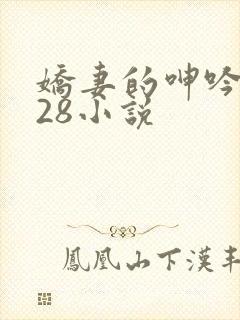 嬌妻的呻吟
28小說
鳳凰山下漢丰